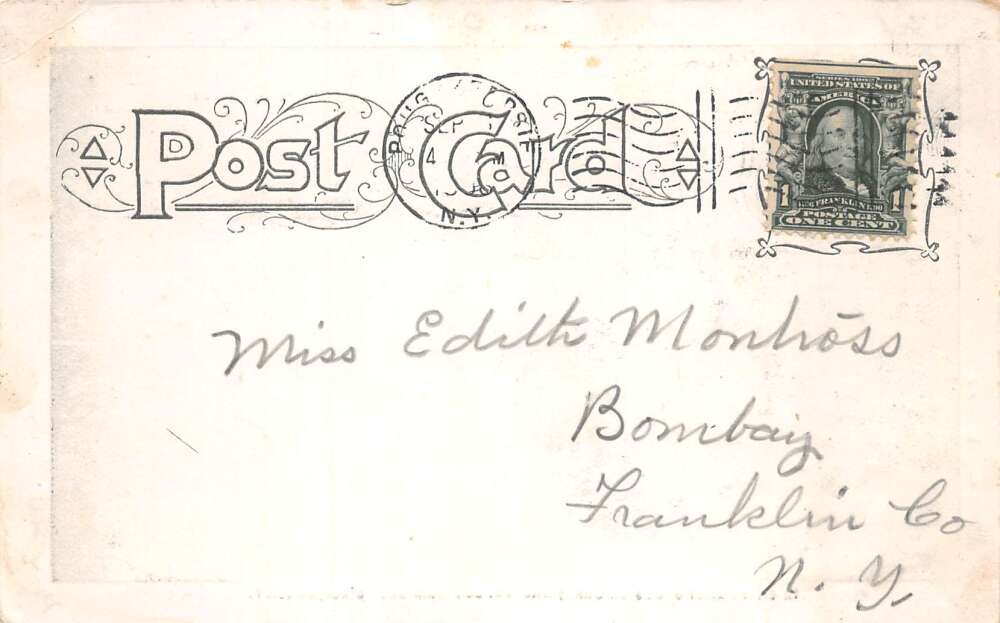 Post Card
SEP
4 M
N.Y.
SERIES 1902
UNITED STATES OF
AMERICA
1 1
FRANKLIN
POSTAGE
ONE CENT
Miss Edith Montross
Bombay
Franklin Co
N. Y.